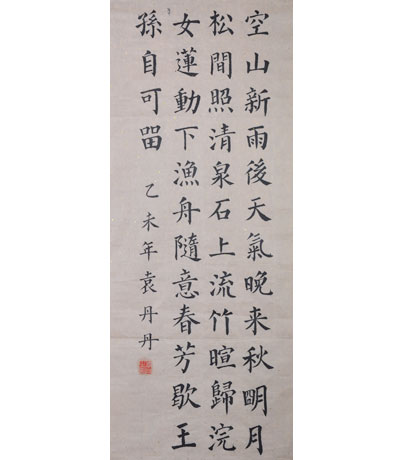 空山新雨後天氣晚来秋明月
松間照清泉石上流竹暄歸浣
女蓮動下漁舟隨意春芳歇王
孫自可留
乙未年袁丹丹